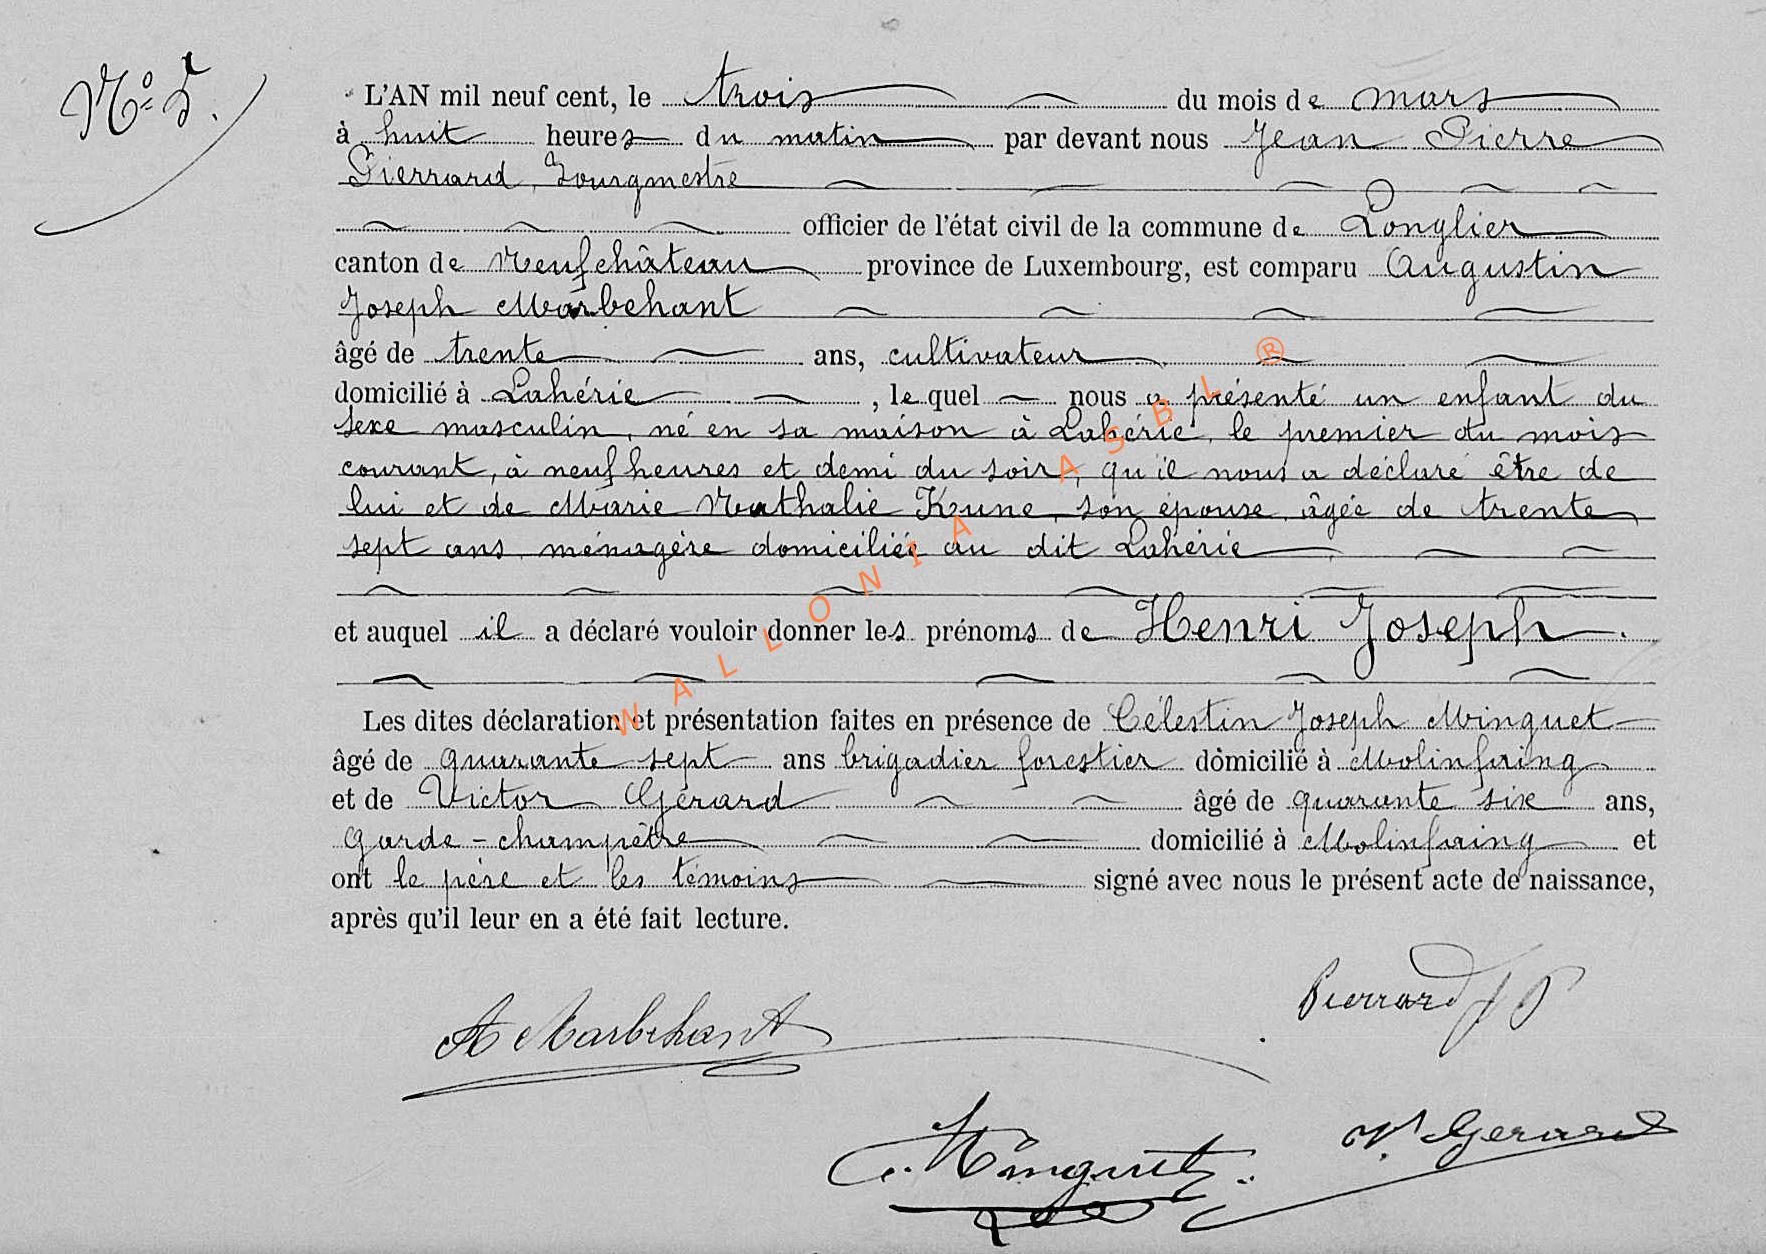 N° 5.
L'AN mil neuf cent, le trois du mois de mars
à huit heures du matin par devant nous Jean Pierre
Pierrard, Bourgmestre
officier de l'état civil de la commune de Longlier
canton de Neufchâteau province de Luxembourg, est comparu Augustin
Joseph Marbehant
âgé de trente ans, cultivateur
domicilié à Lahérie, le quel nous a présenté un enfant du
sexe masculin, né en sa maison à Lahérie, le premier du mois
courant, à neuf heures et demi du soir, qu'il nous a déclaré être de
lui et de Marie Nathalie Kune, son épouse, âgée de trente
sept ans, ménagère domiciliée au dit Lahérie
et auquel il a déclaré vouloir donner les prénoms de Henri Joseph.
Les dites déclaration et présentation faites en présence de Célestin Joseph Minguet
âgé de quarante sept ans brigadier forestier domicilié à Molinfaing
et de Victor Gérard âgé de quarante six ans,
garde-champêtre domicilié à Molinfaing et
ont le père et les témoins signé avec nous le présent acte de naissance,
après qu'il leur en a été fait lecture.
Pierrard JP
A Marbehant
V. Gerard
C. Minguet
WALLONIA ASBL ®